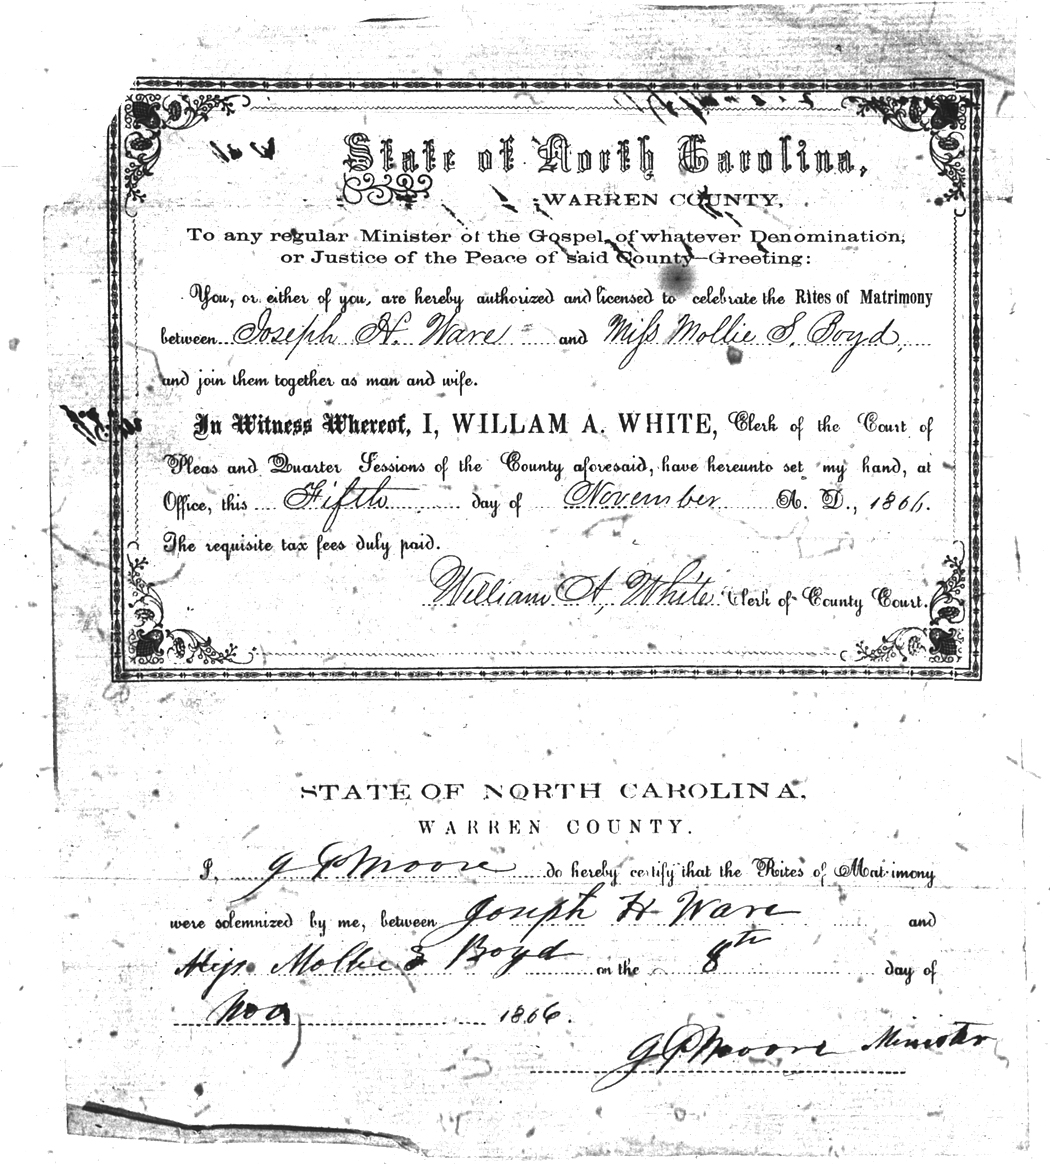 State of North Carolina,
WARREN COUNTY,
To any regular Minister of the Gospel, of whatever Denomination,
or Justice of the Peace of said County—Greeting:
You, or either of you, are hereby authorized and licensed to celebrate the Rites of Matrimony
between Joseph H. Ware and Miss Mollie S. Boyd,
and join them together as man and wife.
In Witness Whereof, I, WILLAM A. WHITE, Clerk of the Court of
Pleas and Quarter Sessions of the County aforesaid, have hereunto set my hand, at
Office, this Fifth day of November A. D., 1866.
The requisite tax fees duly paid.
William A. White Clerk of County Court.
STATE OF NORTH CAROLINA,
WARREN COUNTY.
I, G P Moore do hereby certify that the Rites of Matrimony
were solemnized by me, between Joseph H Ware and
Miss Mollie S Boyd on the 8th day of
1866.
G P Moore Minister